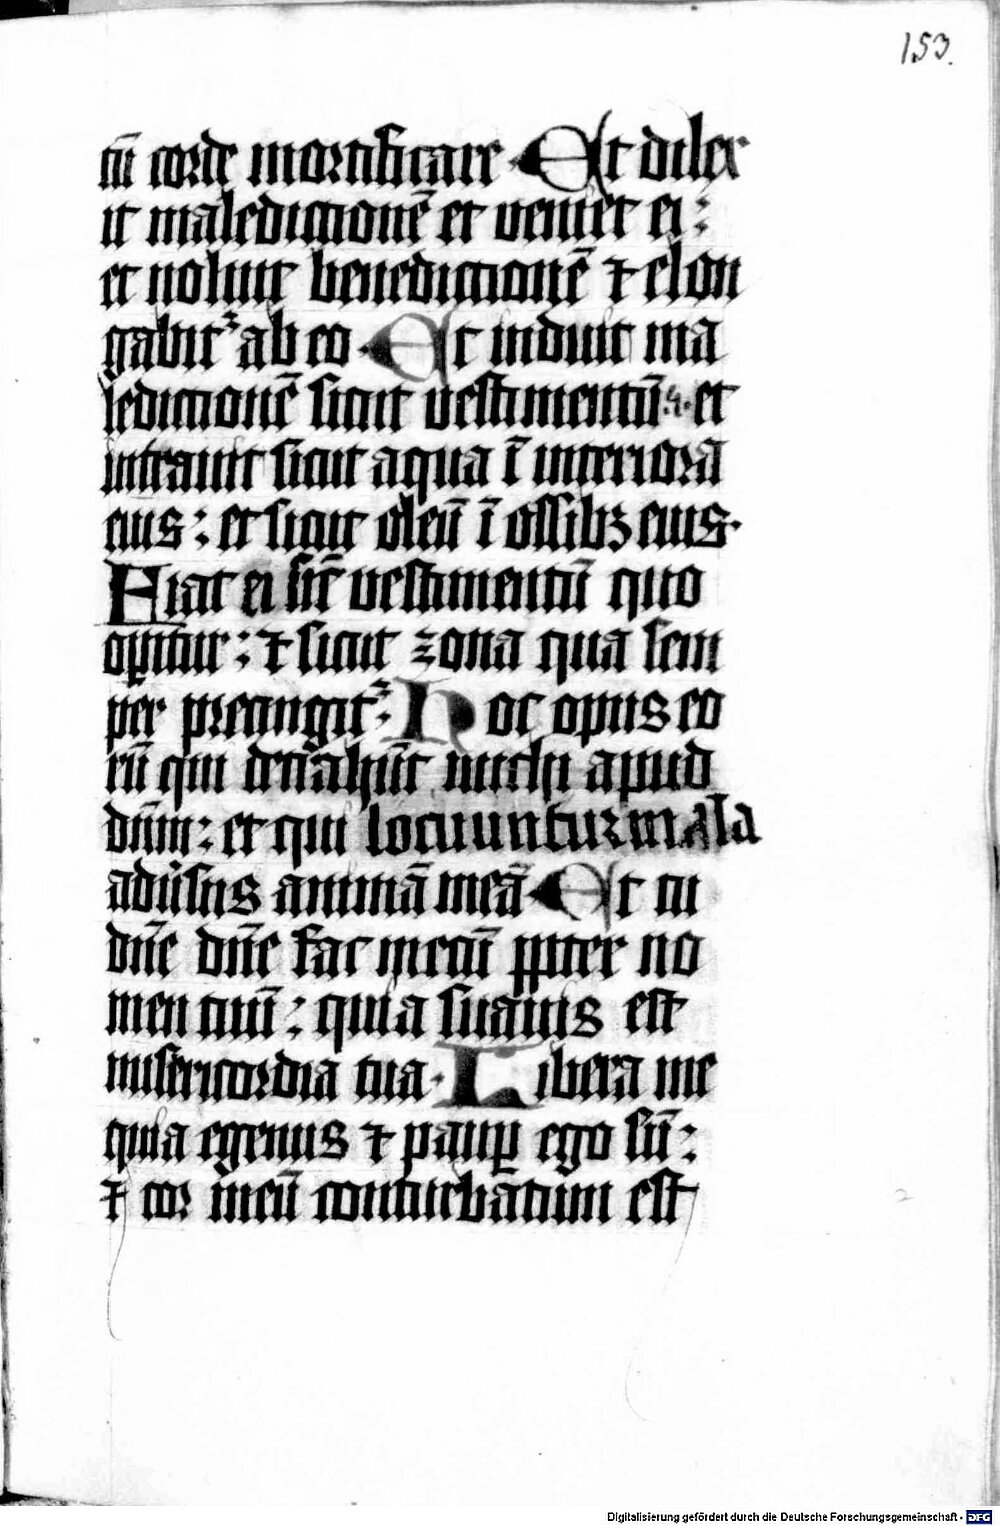 153.
tū corde mortificare Et dilex
it maledictionē et veniet ei :
et noluit benedictionē ⁊ elon
gabit᷑ ab eo Et induit ma
ledictionē sicut vestimentū : et
intrauit sicut aqua ī interiora
eius : et sicut oleū ī ossibꝫ eius .
Fiat ei sic̄ vestimentū quo
oꝑitur : ⁊ sicut zona qua sem
per precingit᷑ . Hoc opus eo
rū qui detrahūt michi apud
dn̄m : et qui locuuntur mala
adūsus animā meā Et tu
dn̄e dn̄e fac mecū ꝓpter no
men tuū : quia suauis est
misericordia tua . Libera me
quia egenus ⁊ pauꝑ ego sū :
⁊ cor meū conturbatum est
2
Digitalisierung gefördert durch die Deutsche Forschungsgemeinschaft - DFG